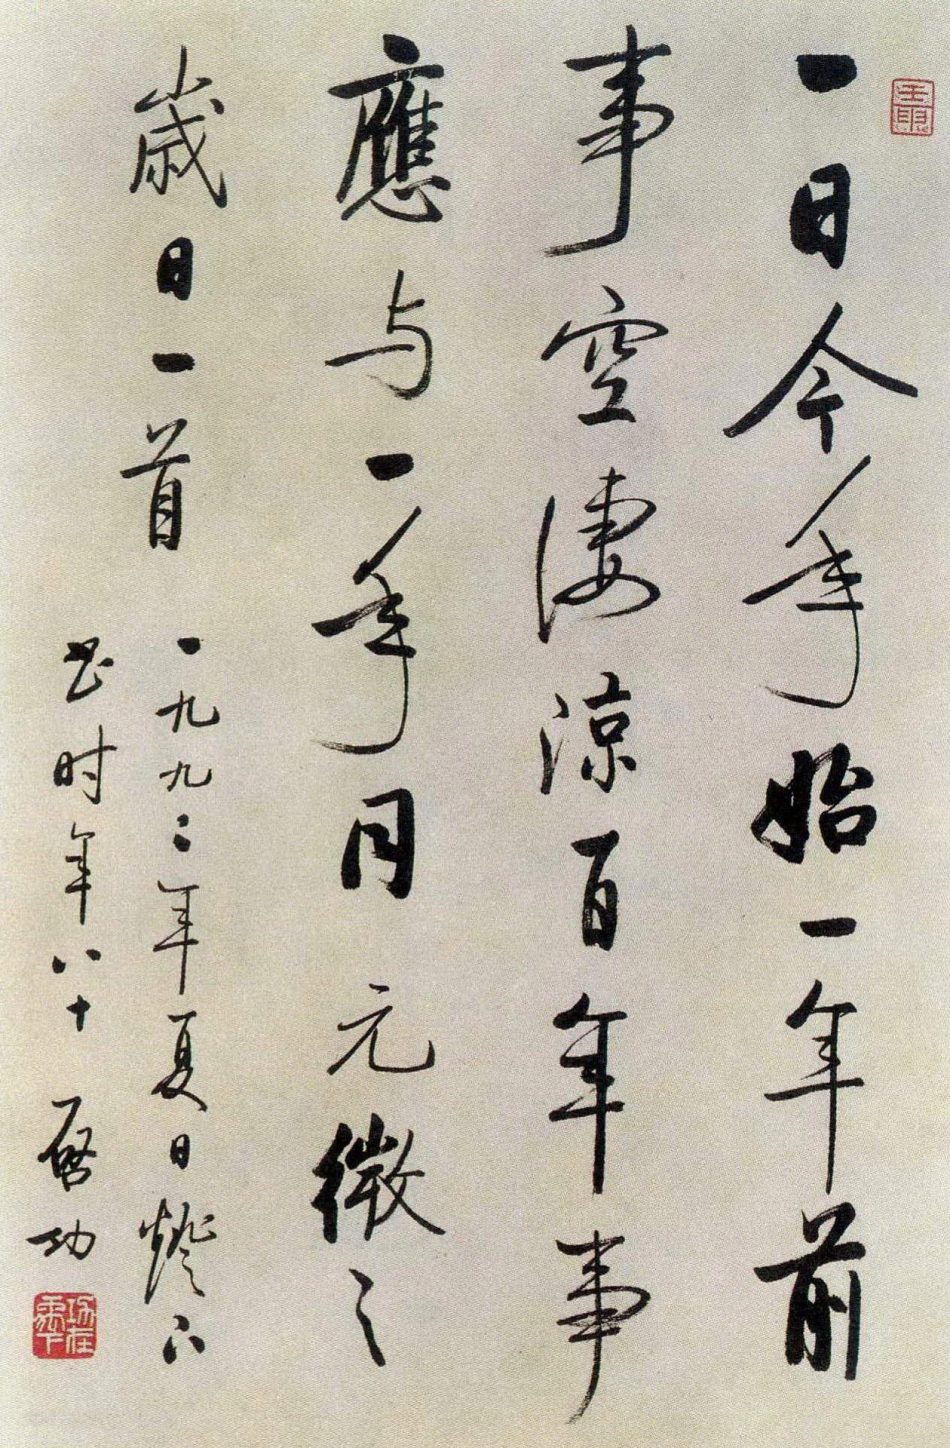 一日今年始一年前
事空淒涼百年事
應与一年同元微之
歲日一首 一九九二年夏日燈下
书时年八十 啓功
功在禹下